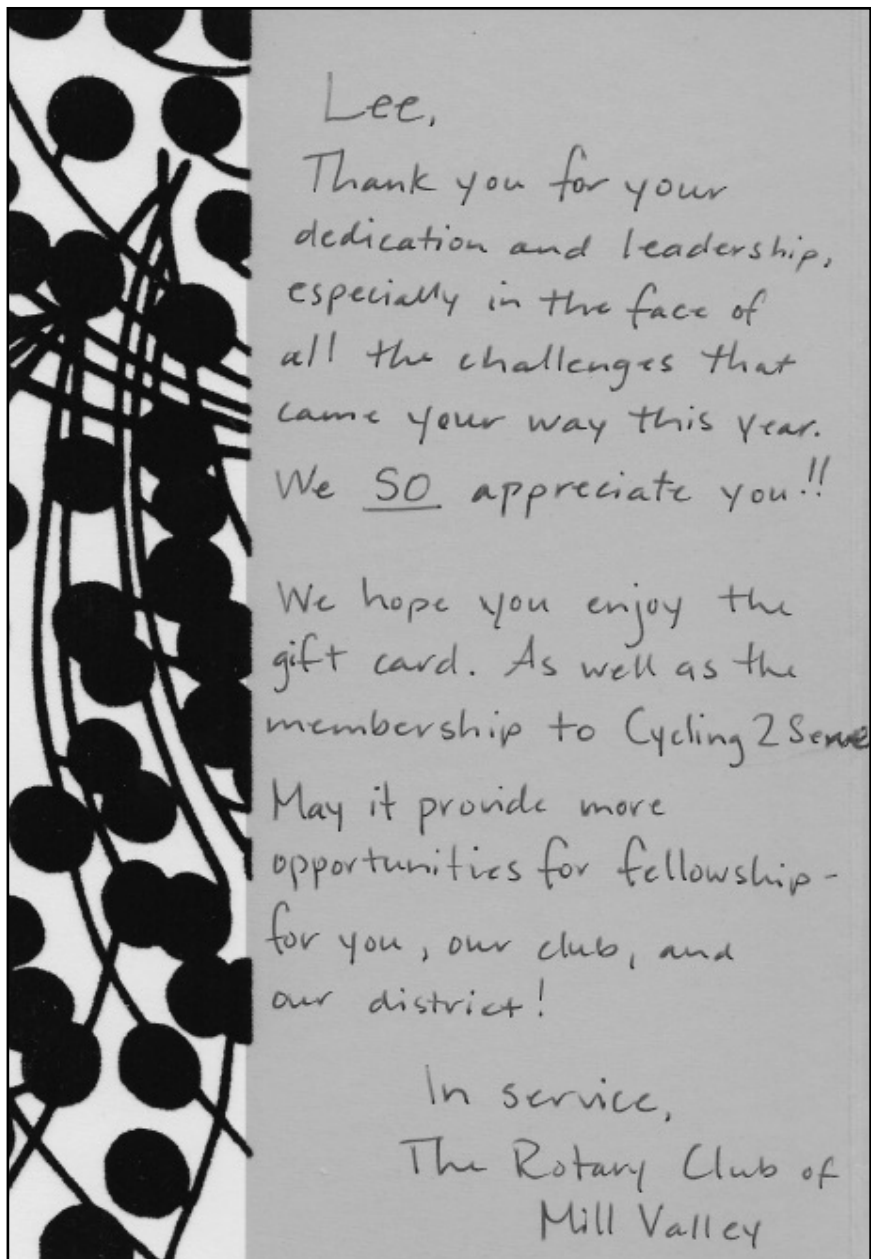 Lee,
Thank you for your
dedication and leadership,
especially in the face of
all the challenges that
came your way this year.
We SO appreciate you!!
We hope you enjoy the
gift card. As well as the
membership to Cycling 2 Serve
May it provide more
opportunities for fellowship -
for you, our club, and
our district!
In service,
The Rotary Club of
Mill Valley